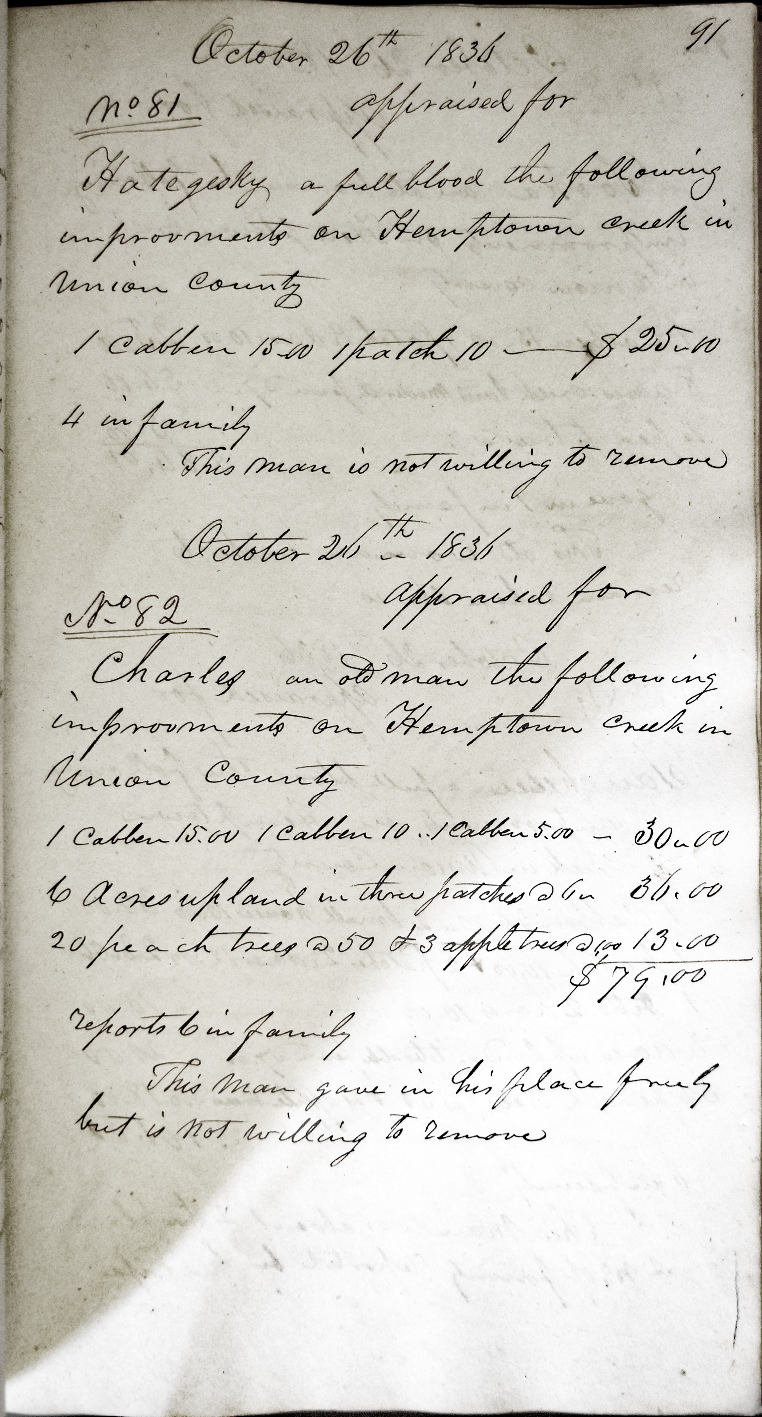 91
October 26th 1836
No 81
appraised for
Hategesky a full blood the following
improvments on Hemptown creek in
Union County
1 Cabben 15.00 1 patch 10 — $ 25.00
4 in family
This man is not willing to remove
October 26th 1836
appraised for
No 82
Charles an old man the following
improvments on Hemptown Creek in
Union County
1 Cabben 15.00 1 Cabben 10 .. 1 Cabben 5.00 — 30.00
6 Acres upland in three patches @ 6 36.00
20 peach trees @ 50 & 3 apple trees @ 1.00 13.00
$ 79.00
reports 6 in family
This man gave in his place freely
but is not willing to remove